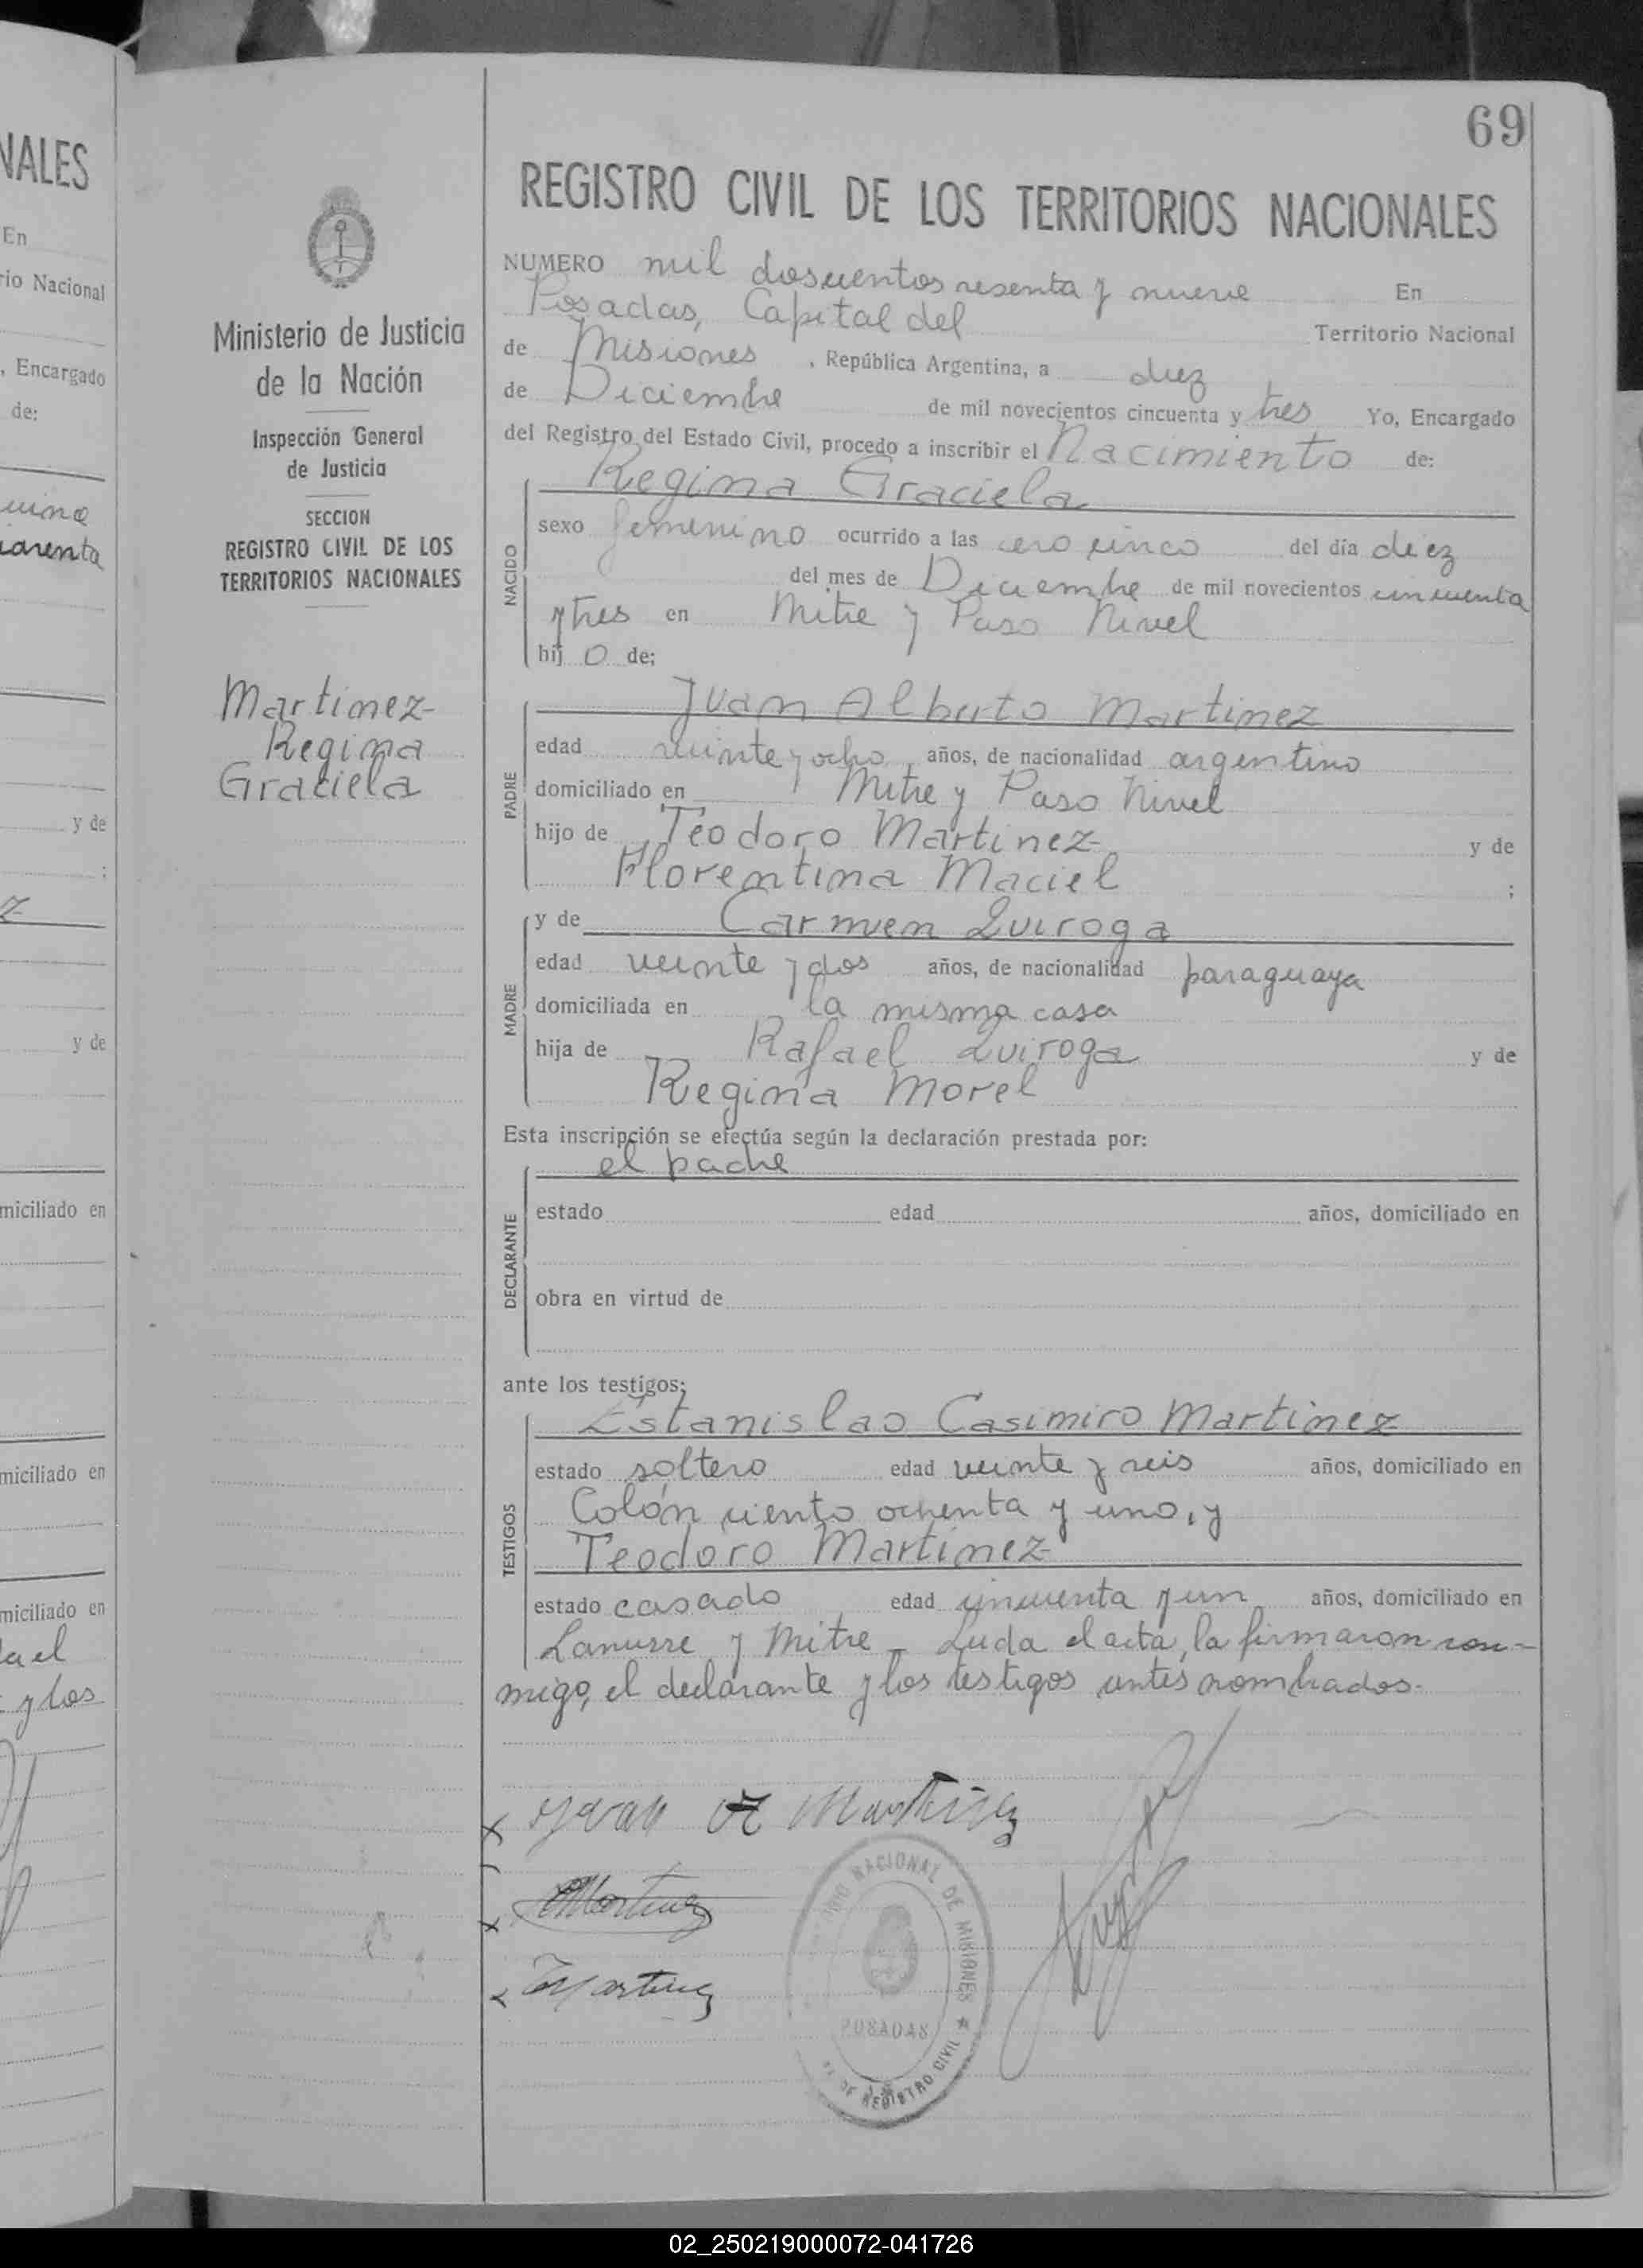 69
REGISTRO CIVIL DE LOS TERRITORIOS NACIONALES
NUMERO mil doscientos sesenta y nueve En
Posadas, Capital del Territorio Nacional
de Misiones, República Argentina, a diez
de Diciembre de mil novecientos cincuenta y tres Yo, Encargado
del Registro del Estado Civil, procedo a inscribir el Nacimiento de:
Regina Graciela
NACIDO
sexo femenino ocurrido a las cero cinco del día diez
del mes de Diciembre de mil novecientos cincuenta
y tres en Mitre y Paso Nivel
hij o de;
Juan Alberto Martinez
PADRE
edad veinte y ocho años, de nacionalidad argentino
domiciliado en Mitre y Paso Nivel
hijo de Teodoro Martinez y de
Florentina Maciel ;
y de Carmen Quiroga
MADRE
edad veinte y dos años, de nacionalidad paraguaya
domiciliada en la misma casa
hija de Rafael Quiroga y de
Regina Morel
Esta inscripción se efectúa según la declaración prestada por:
el padre
DECLARANTE
estado edad años, domiciliado en
obra en virtud de
ante los testigos;
Estanislao Casimiro Martinez
TESTIGOS
estado soltero edad veinte y seis años, domiciliado en
Colón ciento ochenta y uno, y
Teodoro Martinez
estado casado edad cincuenta y un años, domiciliado en
Lanusse y Mitre - Leida el acta, la firmaron con-
migo, el declarante y los testigos antes nombrados.
Juan A Martinez
Martinez
T Martinez
NACIONAL DE MISIONES
POSADAS
DE REGISTRO CIVIL
Ministerio de Justicia
de la Nación
Inspección General
de Justicia
SECCION
REGISTRO CIVIL DE LOS
TERRITORIOS NACIONALES
Martinez
Regina
Graciela
NALES
En
rio Nacional
, Encargado
de:
arenta
y de
;
z
y de
miciliado en
miciliado en
miciliado en
ael
y los
02_250219000072-041726